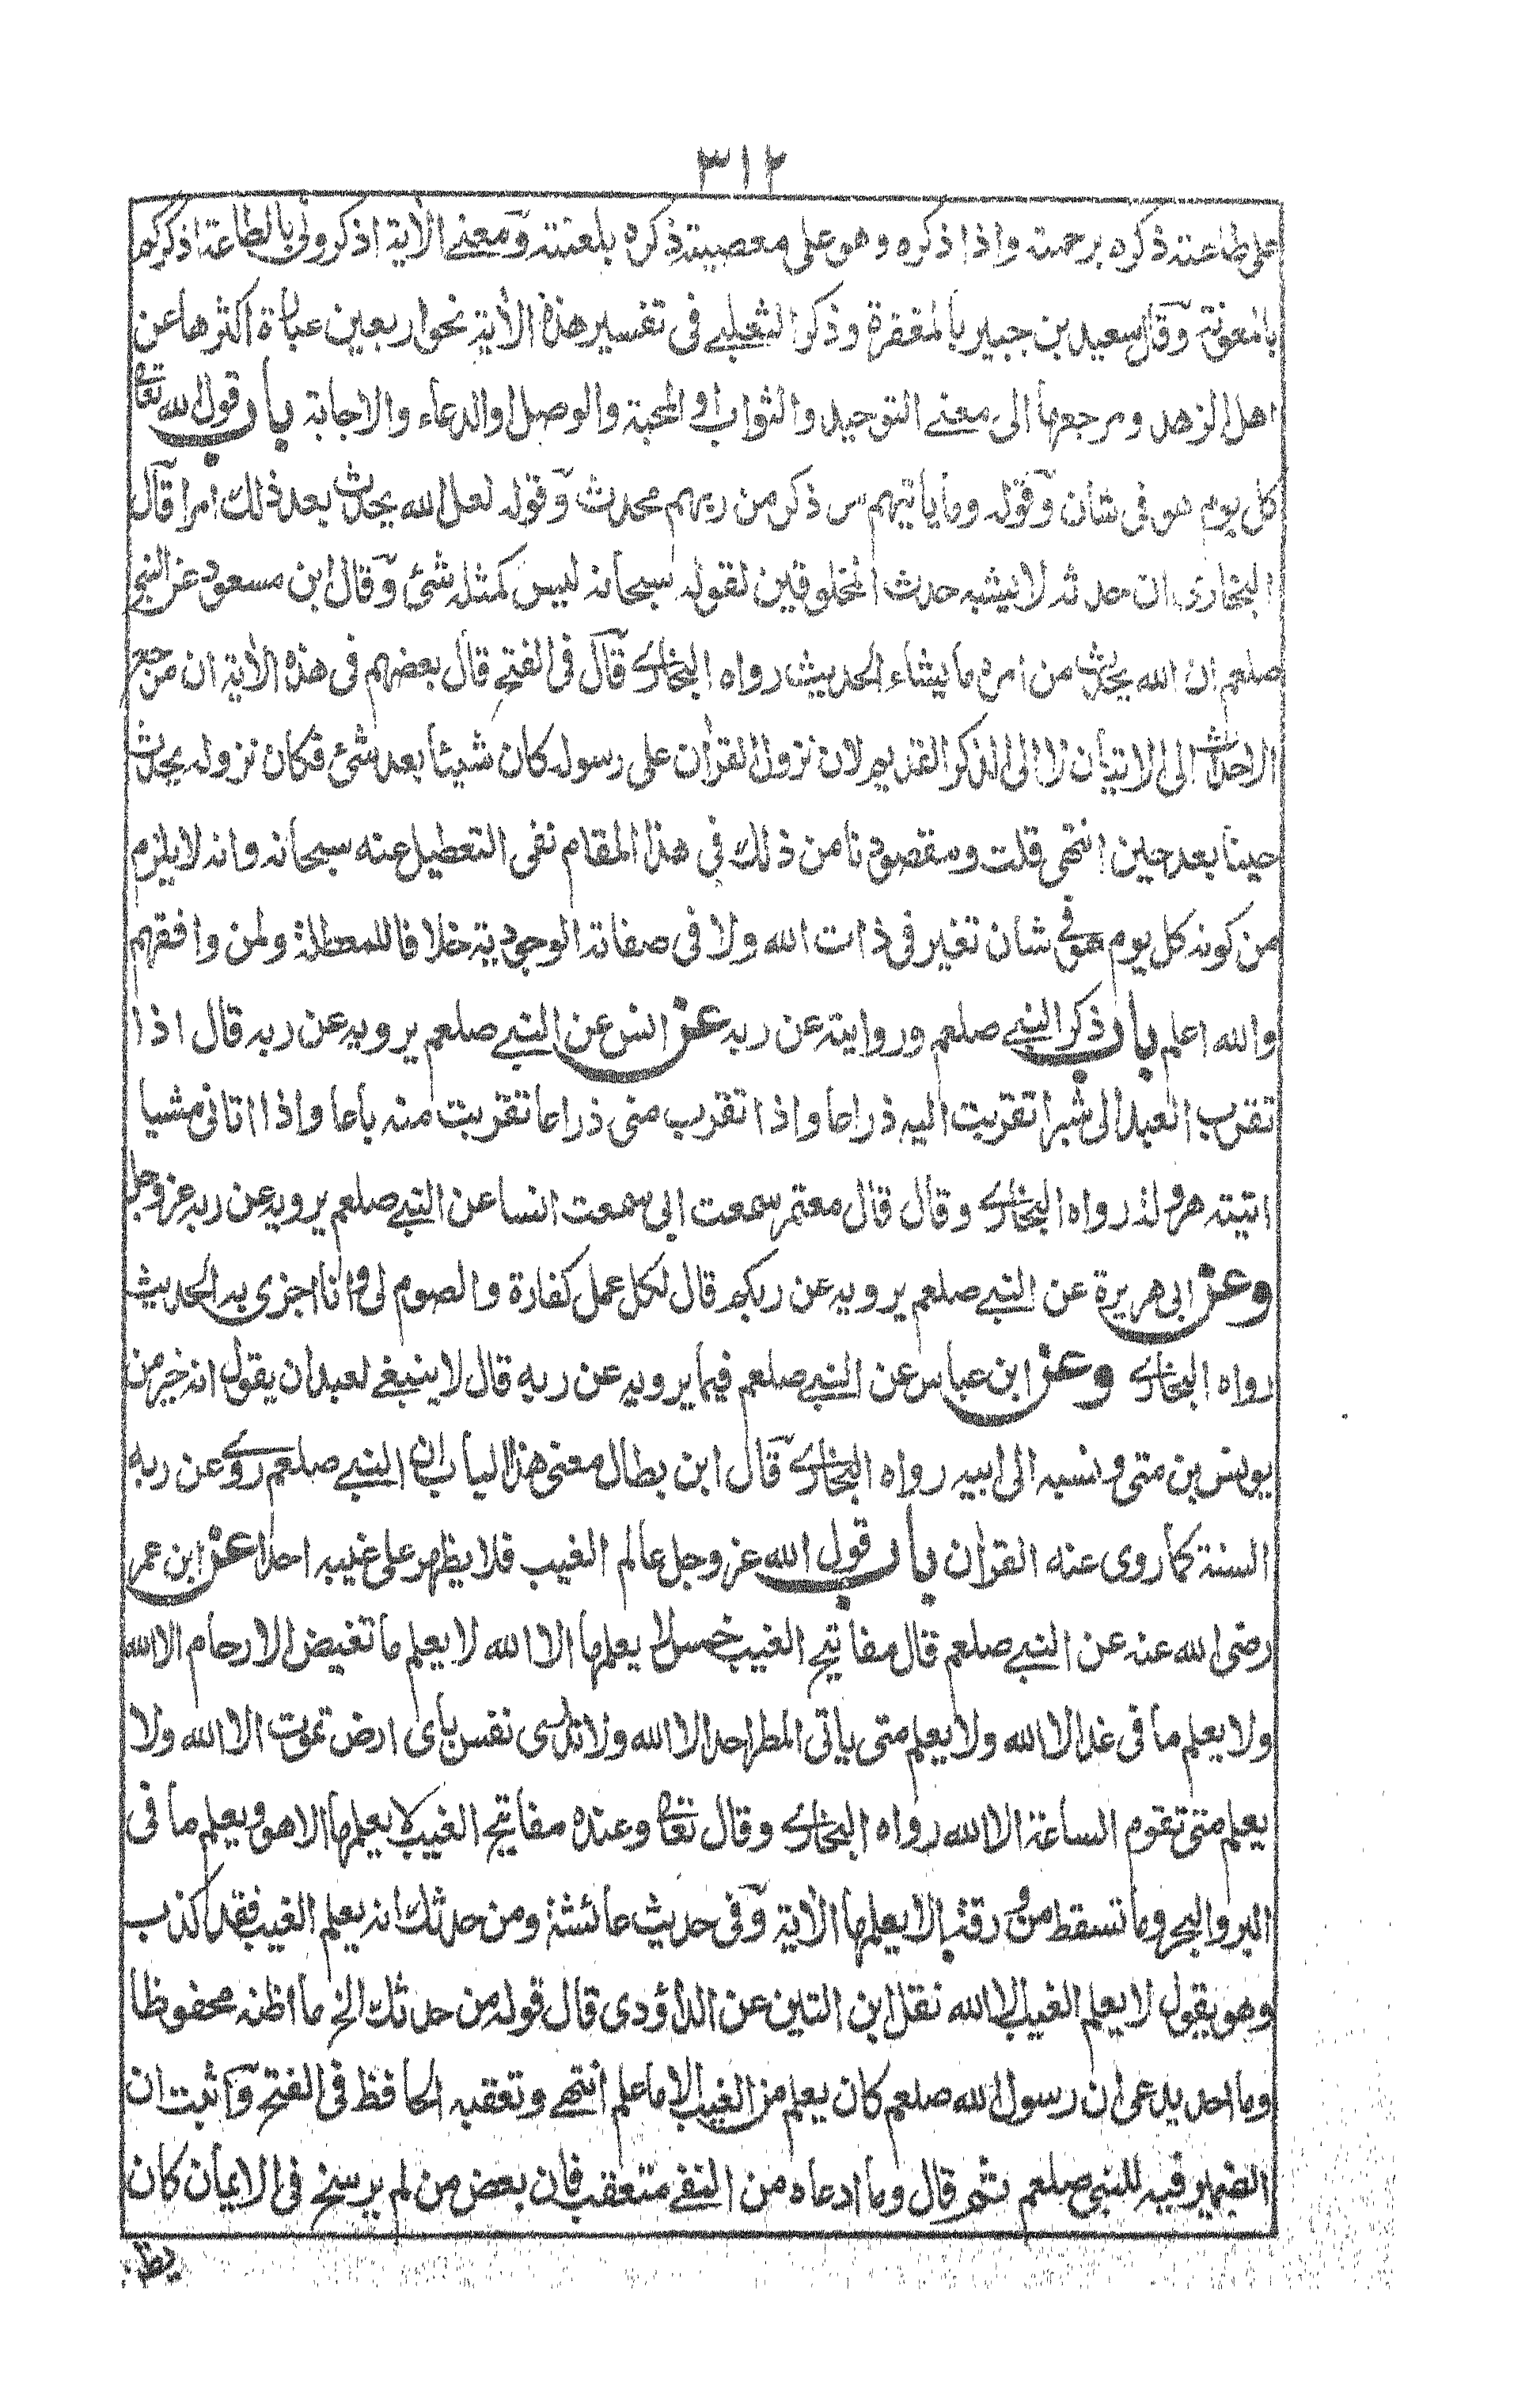 ٣١٢
على طاعته ذكره برحمته واذا ذكره وهو على معصيته ذكره بلعنته ومعنى الأية اذكرونى بالطاعة اذكركم
بالمعونة وقال سعيد بن جبير بالمغفرة وذكر الثعلبى فى تفسير هذه الأية نحو اربعين عبارة اكثرها عن
اهل الزهد ومرجعها الى معنى التوحيد والثواب او المحبة والوصل او الدعاء والاجابة باب قول الله تعالى
كل يوم هو فى شان وقوله وما ياتيهم من ذكر من ربهم محدث وقوله لعل الله يحدث بعد ذلك امرا قال
البخارى ان حدثه لا يشبه حدث المخلوقين لقوله سبحانه ليس كمثله شئ وقال ابن مسعود عن النبى
صلعم ان الله يحدث من امره ما يشاء الحديث رواه البخارى قال فى الفتح قال بعضهم فى هذه الأية ان مرجع
الاحداث الى الاتيان لا الى الذكر القديم لان نزول القرأن على رسوله كان شيئا بعد شئ فكان نزوله يحدث
حينا بعد حين انتهى قلت ومقصودنا من ذلك فى هذا المقام نفى التعطيل عنه سبحانه وانه لا يلزم
من كونه كل يوم هو فى شان تغير فى ذات الله ولا فى صفاته الوجودية خلافا للمعطلة ولمن وافقهم
والله اعلم باب ذكر النبى صلعم وروايته عن ربه عن انس عن النبى صلعم يرويه عن ربه قال اذا
تقرب العبد الى شبرا تقربت اليه ذراعا واذا تقرب منى ذراعا تقربت منه باعا واذا اتانى مشيا
اتيته هرولة رواه البخارى وقال قال معتمر سمعت ابى سمعت انسا عن النبى صلعم يرويه عن ربه عز وجل
وعن ابى هريرة عن النبى صلعم يرويه عن ربكم قال لكل عمل كفارة والصوم لى وانا اجزى به الحديث
رواه البخارى وعن ابن عباس عن النبى صلعم فيما يرويه عن ربه قال لا ينبغى لعبد ان يقول انه خير من
يونس بن متى ونسبه الى ابيه رواه البخارى قال ابن بطال معنى هذا الباب ان النبى صلعم روى عن ربه
السنة كما روى عنه القرأن باب قول الله عز وجل عالم الغيب فلا يظهر على غيبه احدا عن ابن عمر
رضى الله عنه عن النبى صلعم قال مفاتيح الغيب خمس لا يعلمها الا الله لا يعلم ما تغيض الارحام الا الله
ولا يعلم ما فى غد الا الله ولا يعلم متى ياتى المطر احد الا الله ولا تدرى نفس باى ارض تموت الا الله ولا
يعلم متى تقوم الساعة الا الله رواه البخارى وقال تعالى وعنده مفاتح الغيب لا يعلمها الا هو ويعلم ما فى
البر والبحر وما تسقط من ورقة الا يعلمها الأية وفى حديث عائشة ومن حدثك انه يعلم الغيب فقد كذب
وهو يقول لا يعلم الغيب الا الله نقل ابن التين عن الداؤدى قال قوله من حدثك الخ ما اظنه محفوظا
وما احد يدعى ان رسول الله صلعم كان يعلم من الغيب الا ما علم انتهى وتعقبه الحافظ فى الفتح واثبت ان
الضمير فيه للنبى صلعم ثم قال وما ادعاه من النفى متعقب فان بعض من لم يرسخ فى الايمان كان
يظن